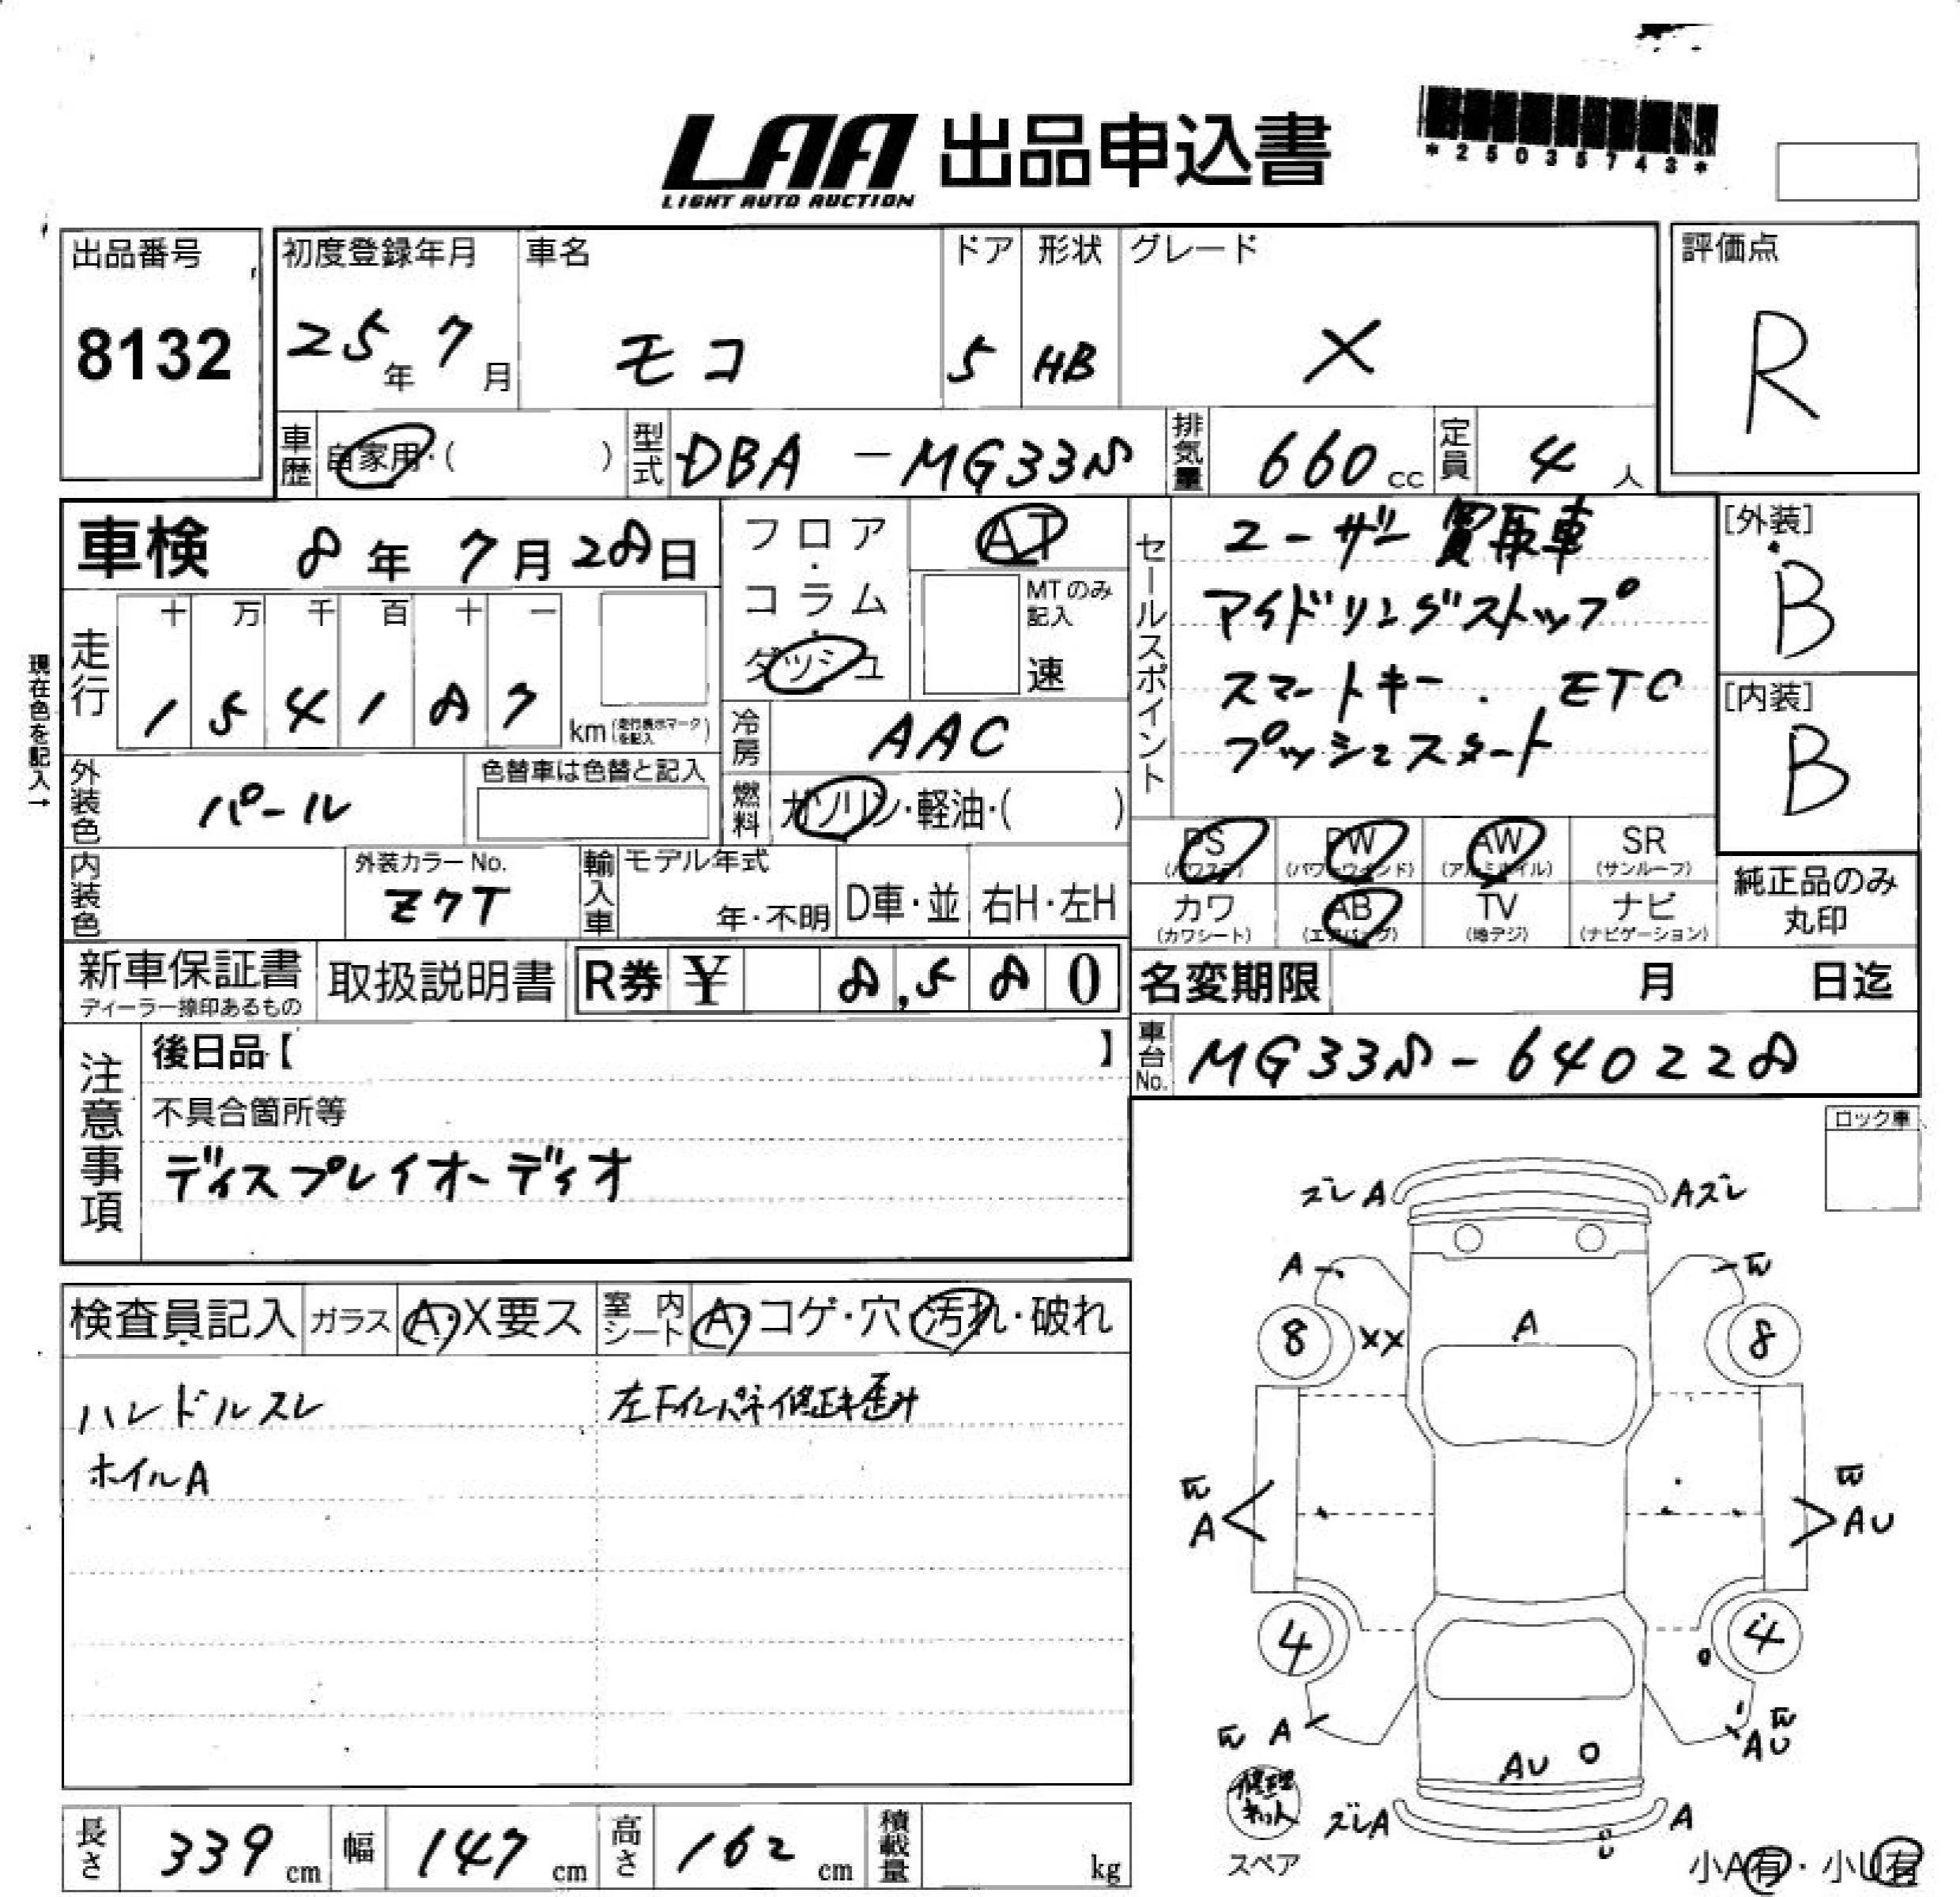 LAA 出品申込書
LIGHT AUTO AUCTION
*25035743*
出品番号
8132
初度登録年月
25年 7月
車名
モコ
ドア
5
形状
HB
グレード
X
評価点
R
車歴 自家用・( )
型式 DBA-MG33S
排気量 660 cc
定員 4 人
車検 8年 7月 28日
フロア・コラム・ダッシュ
AT
MTのみ記入
速
セールスポイント
ユーザー買取車
アイドリングストップ
スマートキー. ETC
プッシュスタート
[外装]
B
[内装]
B
現在色を記入→
走行
十 万 千 百 十 一
1 5 4 1 8 7
km (走行表示マークを記入)
冷房 AAC
外装色 パール
色替車は色替と記入
燃料 ガソリン・軽油・( )
内装色
外装カラーNo.
Z7T
輸入車 モデル年式
年・不明
D車・並
右H・左H
PS (パワステ)
PW (パワーウインド)
AW (アルミホイル)
SR (サンルーフ)
カワ (カワシート)
AB (エアバッグ)
TV (地デジ)
ナビ (ナビゲーション)
純正品のみ
丸印
新車保証書
ディーラー捺印あるもの
取扱説明書
R券 ¥ 8,580
名変期限 月 日迄
注意事項
後日品【 】
不具合箇所等
ディスプレイオーディオ
車台No. MG33S-640228
ロック車
検査員記入
ガラス A・X要ス
室内シート A・コゲ・穴・汚れ・破れ
ハンドルスレ
ホイルA
ズレA Aズレ
A W
8 XX A 8
W W
A AU
4 4
W A AU W AU
ズレA A
修理キット
スペア
小A有・小U有
長さ 339 cm
幅 147 cm
高さ 162 cm
積載量 kg